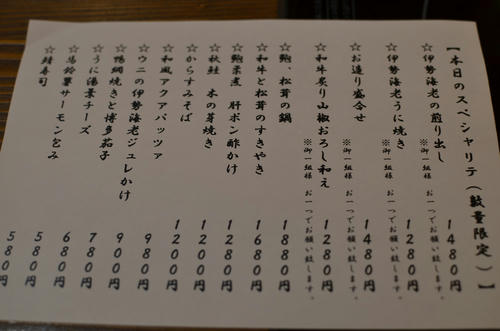 【本日のスペシャリテ(数量限定)】
☆伊勢海老の煎り出し 1480円
※御一組様 お一つでお願い致します。
☆伊勢海老うに焼き 1280円
※御一組様 お一つでお願い致します。
☆お造り盛合せ 1480円
※御一組様 お一つでお願い致します。
☆和牛炙り山椒おろし和え 1280円
※御一組様 お一つでお願い致します。
☆鮑、松茸の鍋 1880円
☆和牛と松茸のすきやき 1680円
☆鮑柔煮 肝ポン酢かけ 1280円
☆秋鮭 木の芽焼き 1200円
☆からすみそば 1200円
☆和風アクアパッツァ 980円
☆ウニの伊勢海老ジュレかけ 900円
☆鴨網焼きと博多茄子 780円
☆うに湯葉チーズ 680円
☆馬鈴薯サーモン包み 580円
☆鯖寿司 580円